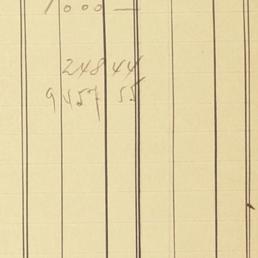 1000 —
248 44
9457 55